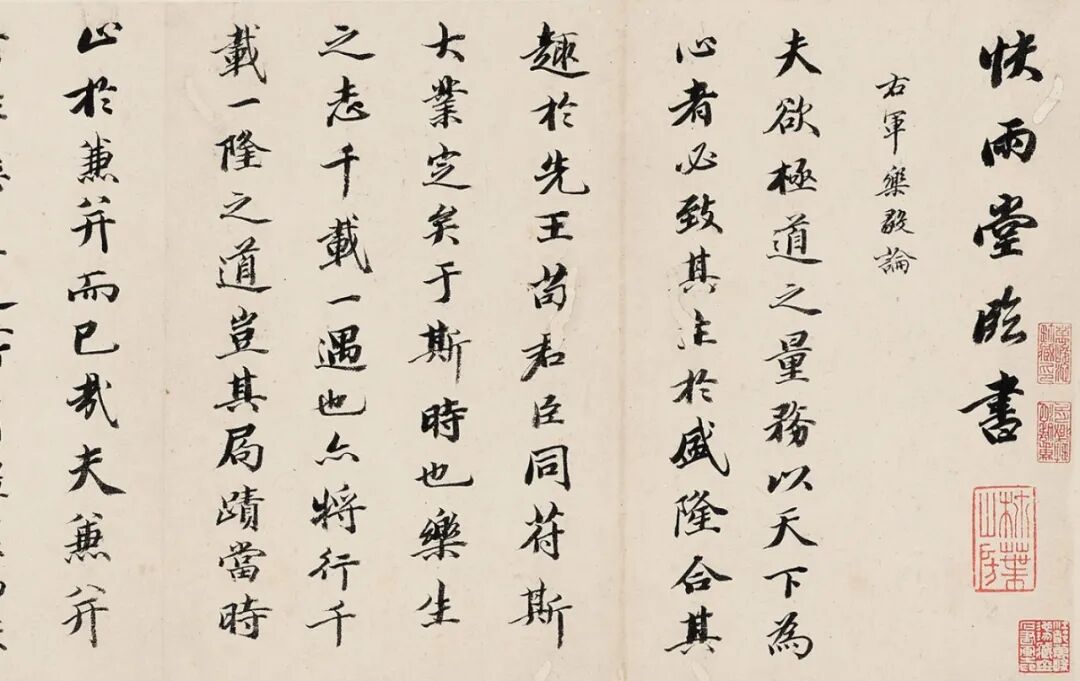 快雨堂臨書
右軍樂毅論
夫欲極道之量務以天下為
心者必致其主於盛隆合其
趣於先王苟君臣同符斯
大業定矣于斯時也樂生
之志千載一遇也亦將行千
載一隆之道豈其局蹟當時
止於兼并而已哉夫兼并